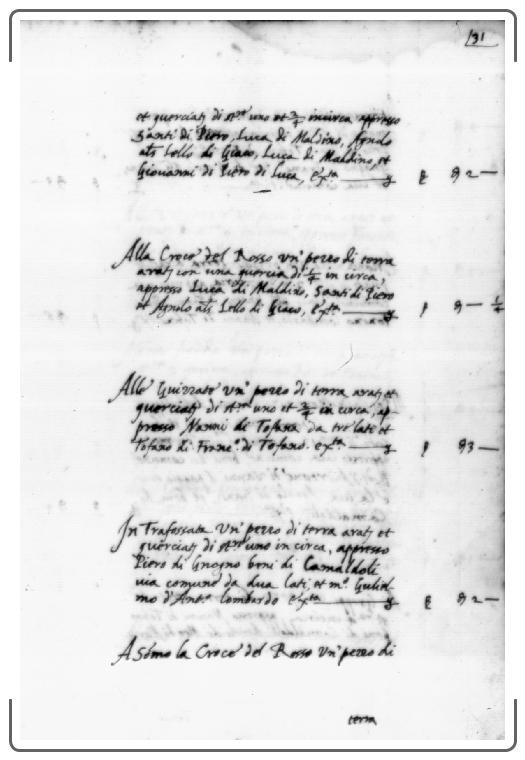 31
et querciatj di st.ro uno et 3/4 incirca appresso
Santi di Piero, Luca di Maldino, Agnolo
als Lollo di Giaco, Luca di Maldino, et
Giovanni di Piero di Luca, ex.ta
Alla Croce del Rosso un' pezzo di terra
arat.j con una quercia di 1/4 in circa,
appresso Luca di Maldino, Santi di Piero
et Agnolo als Lollo di Giaco, ex.ta
Alle Guizzate un' pezzo di terra arat.j et
querciatj di st.ro uno et 3/4 in circa, ap-
presso Nanni di Tofano da tre lati et
Tofano di Franc.o di Tofano. ex.ta
In Trafossata un' pezzo di terra arat.j et
querciatj di st.ro uno in circa, appresso
Piero di Gnogno beni di Camaldoli
via comune da dua lati, et m.o Guliel-
mo d'Ant.o lombardo ex.ta
A Sõmo la Croce del Rosso un' pezzo di
terra